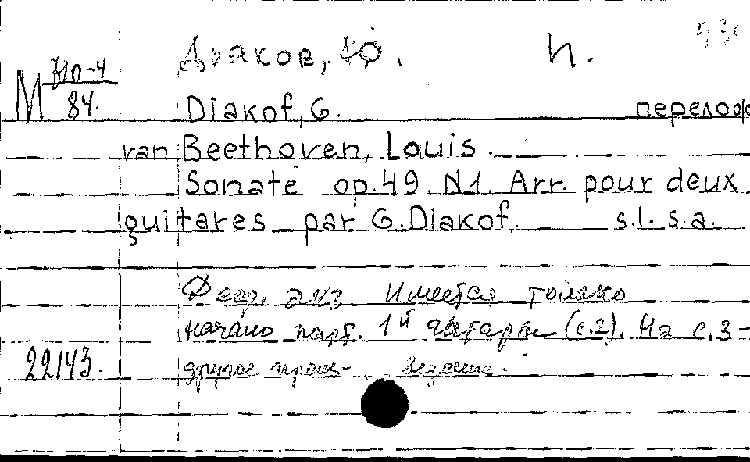 Дьяков, Ю. п.
М 710-4
84.
Diakof, G. перелож
van Beethoven, Louis.
Sonate op. 49 N1. Arr. pour deux
guitares par G. Diakof. s.l. s.a.
экз Имеется только
начало парт. 1й гитары (с.2). На с. 3-
22143. другое произ- ведение.